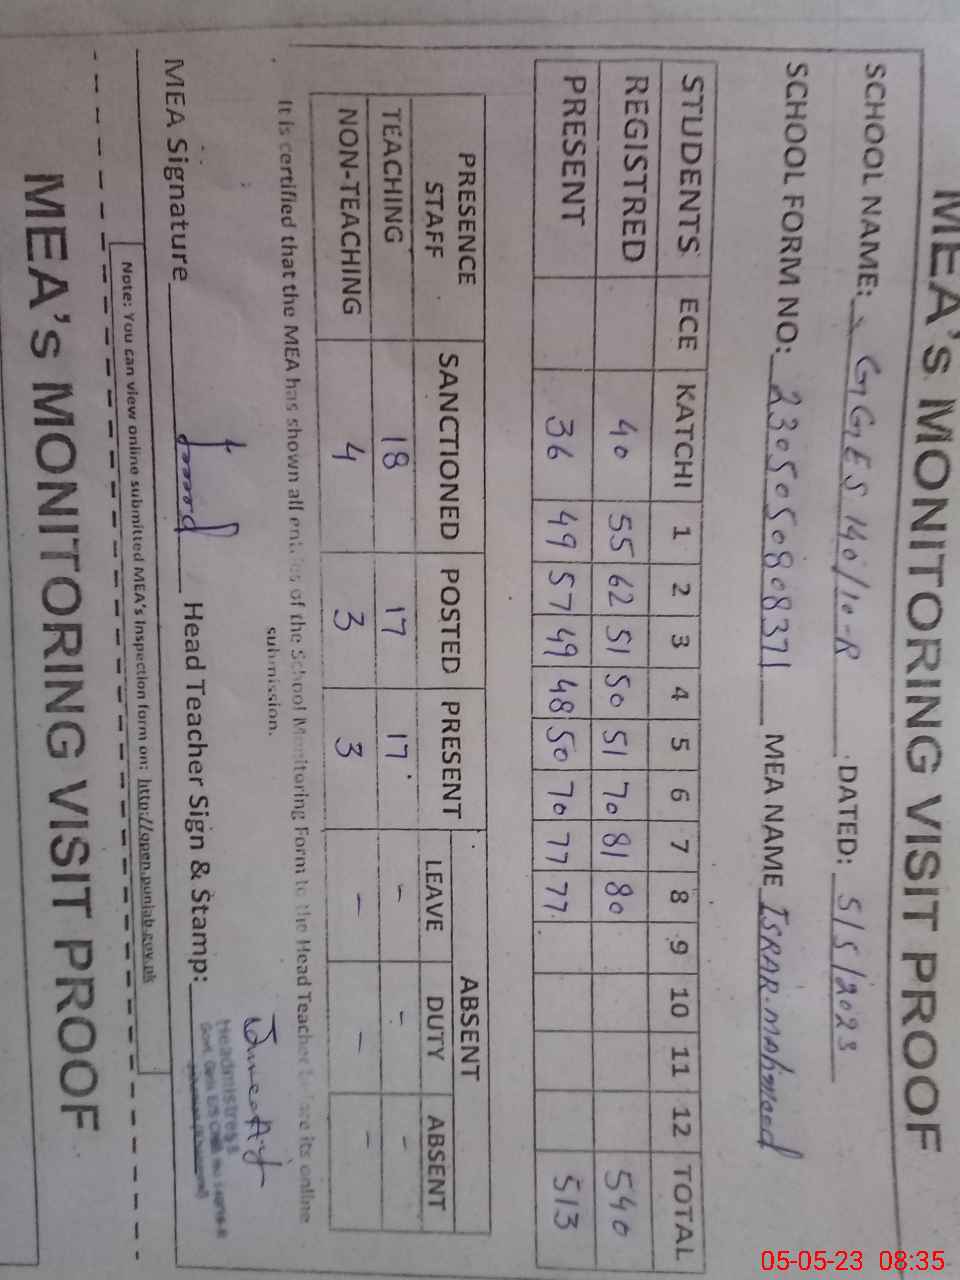 MEA's MONITORING VISIT PROOF
SCHOOL NAME: GGES 140/10-R DATED: 5/5/2023
SCHOOL FORM NO: 2305050808371 MEA NAME ISRAR.MAhmood
STUDENTS ECE KATCHI 1 2 3 4 5 6 7 8 9 10 11 12 TOTAL
REGISTRED 40 55 62 51 50 51 70 81 80 540
PRESENT 36 49 57 49 48 50 70 77 77 513
PRESENCE STAFF SANCTIONED POSTED PRESENT ABSENT
LEAVE DUTY ABSENT
TEACHING 18 17 17 - - -
NON-TEACHING 4 3 3 - - -
It is certified that the MEA has shown all entries of the School Monitoring Form to the Head Teacher before its online
submission.
MEA Signature Head Teacher Sign & Stamp:
Headmistress
Note: You can view online submitted MEA's Inspection form on: http://open.punjab.gov.pk
MEA's MONITORING VISIT PROOF
05-05-23 08:35